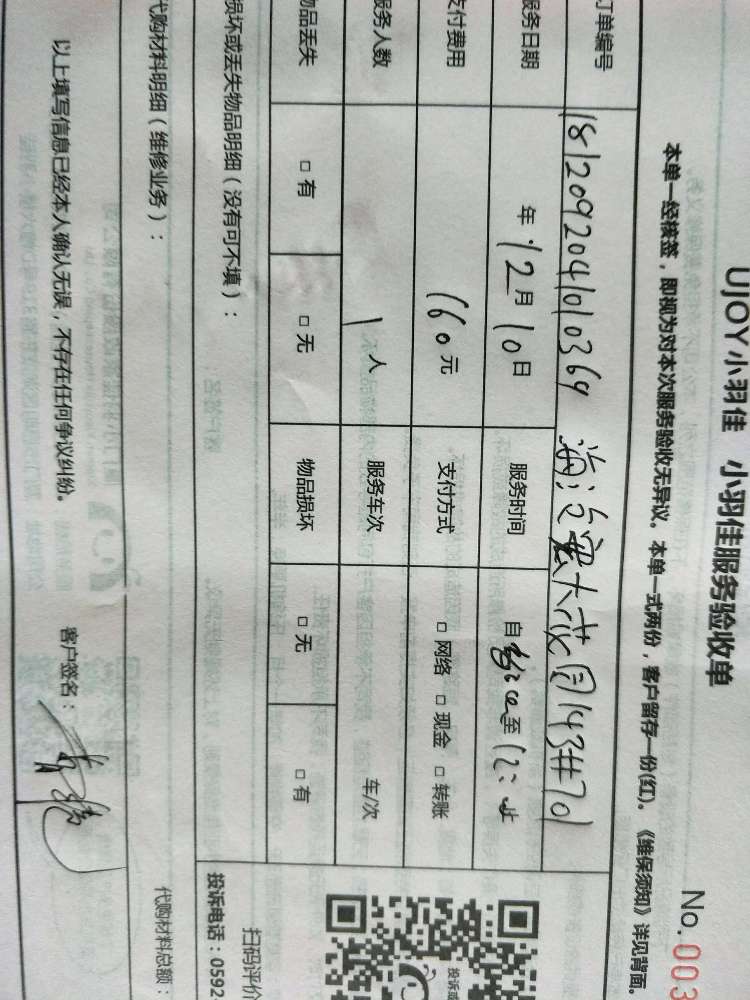 UJOY小羽佳 小羽佳服务验收单
No.003
本单一经核签，即视为对本次服务验收无异议。本单一式两份，客户留存一份(红)。《维保须知》详见背面。
订单编号 181209204010369 143#701
服务日期 年12月10日 服务时间 自 至12:
支付费用 160元 支付方式 □网络 □现金 □转账
服务人数 1人 服务车次 车/次
物品丢失 □有 □无 物品损坏 □无 □有
损坏或丢失物品明细（没有可不填）：
扫码评价
投诉电话：0592
代购材料明细（维修业务）：
代购材料总额：
以上填写信息已经本人确认无误，不存在任何争议纠纷。 客户签名：